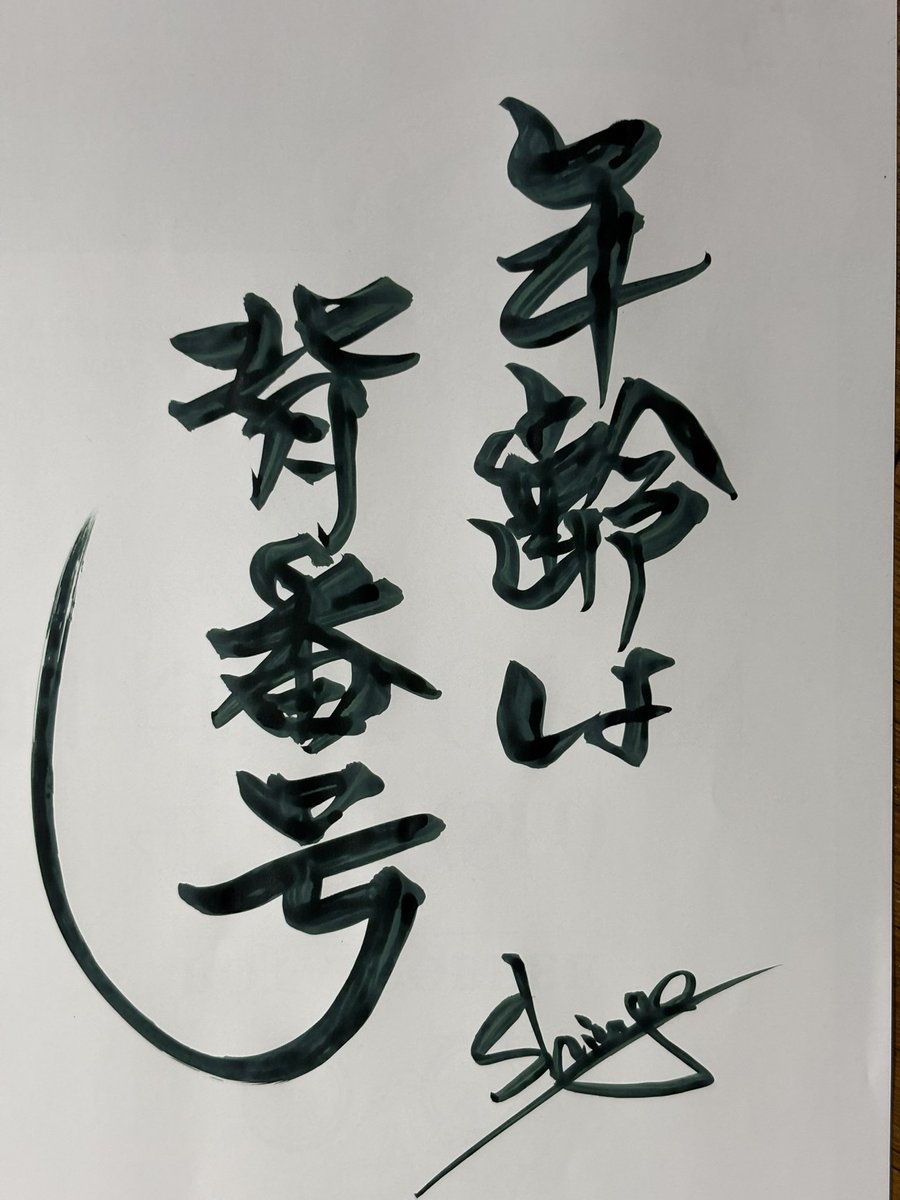 年齢は
背番号
Shingo